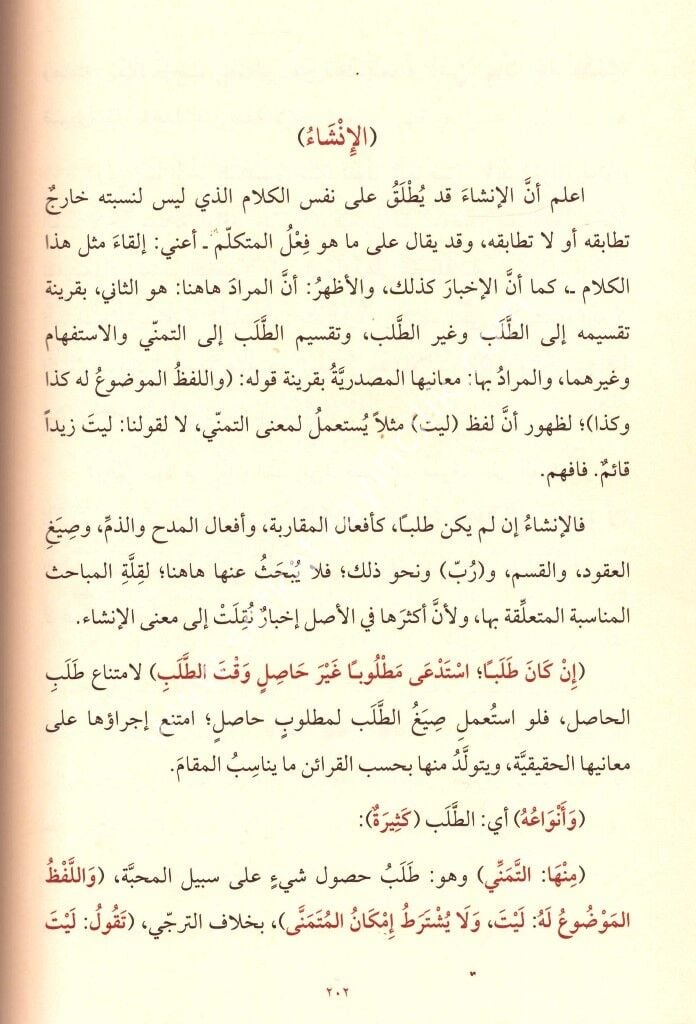 (الإِنْشَاءُ)
اعلم أنَّ الإنشاءَ قد يُطْلَقُ على نفس الكلام الذي ليس لنسبته خارجٌ
تطابقه أو لا تطابقه، وقد يقال على ما هو فِعْلُ المتكلّم ـ أعني: إلقاءَ مثل هذا
الكلام ـ، كما أنَّ الإخبارَ كذلك، والأظهرُ: أنَّ المرادَ هاهنا: هو الثاني، بقرينة
تقسيمه إلى الطَّلَب وغير الطَّلب، وتقسيم الطَّلَب إلى التمنّي والاستفهام
وغيرهما، والمرادُ بها: معانيها المصدريَّةُ بقرينة قوله: (واللفظُ الموضوعُ له كذا
وكذا)؛ لظهور أنَّ لفظ (ليت) مثلاً يُستعملُ لمعنى التمنّي، لا لقولنا: ليتَ زيداً
قائمٌ. فافهم.
فالإنشاءُ إن لم يكن طلبًا، كأفعال المقاربة، وأفعال المدح والذمِّ، وصِيَغِ
العقود، والقسم، و(رُبّ) ونحو ذلك؛ فلا يُبْحَثُ عنها هاهنا؛ لقِلَّةِ المباحث
المناسبة المتعلِّقة بها، ولأنَّ أكثرَها في الأصل إخبارٌ نُقِلَتْ إلى معنى الإنشاء.
(إِنْ كَانَ طَلَبًا؛ اسْتَدْعَى مَطْلُوبًا غَيْرَ حَاصِلٍ وَقْتَ الطَّلَبِ) لامتناع طَلَبِ
الحاصل، فلو استُعملِ صِيَغُ الطَّلَب لمطلوبٍ حاصلٍ؛ امتنع إجراؤها على
معانيها الحقيقيَّة، ويتولَّدُ منها بحسب القرائن ما يناسِبُ المقامَ.
(وَأَنْوَاعُهُ) أي: الطَّلَب (كَثِيرَةٌ):
(مِنْهَا: التَّمَنِّي) وهو: طَلَبُ حصول شيءٍ على سبيل المحبَّة، (وَاللَّفْظُ
المَوْضُوعُ لَهُ: لَيْتَ، وَلَا يُشْتَرَطُ إِمْكَانُ المُتَمَنَّى)، بخلاف الترجّي، (تَقُولُ: لَيْتَ
٢٠٢